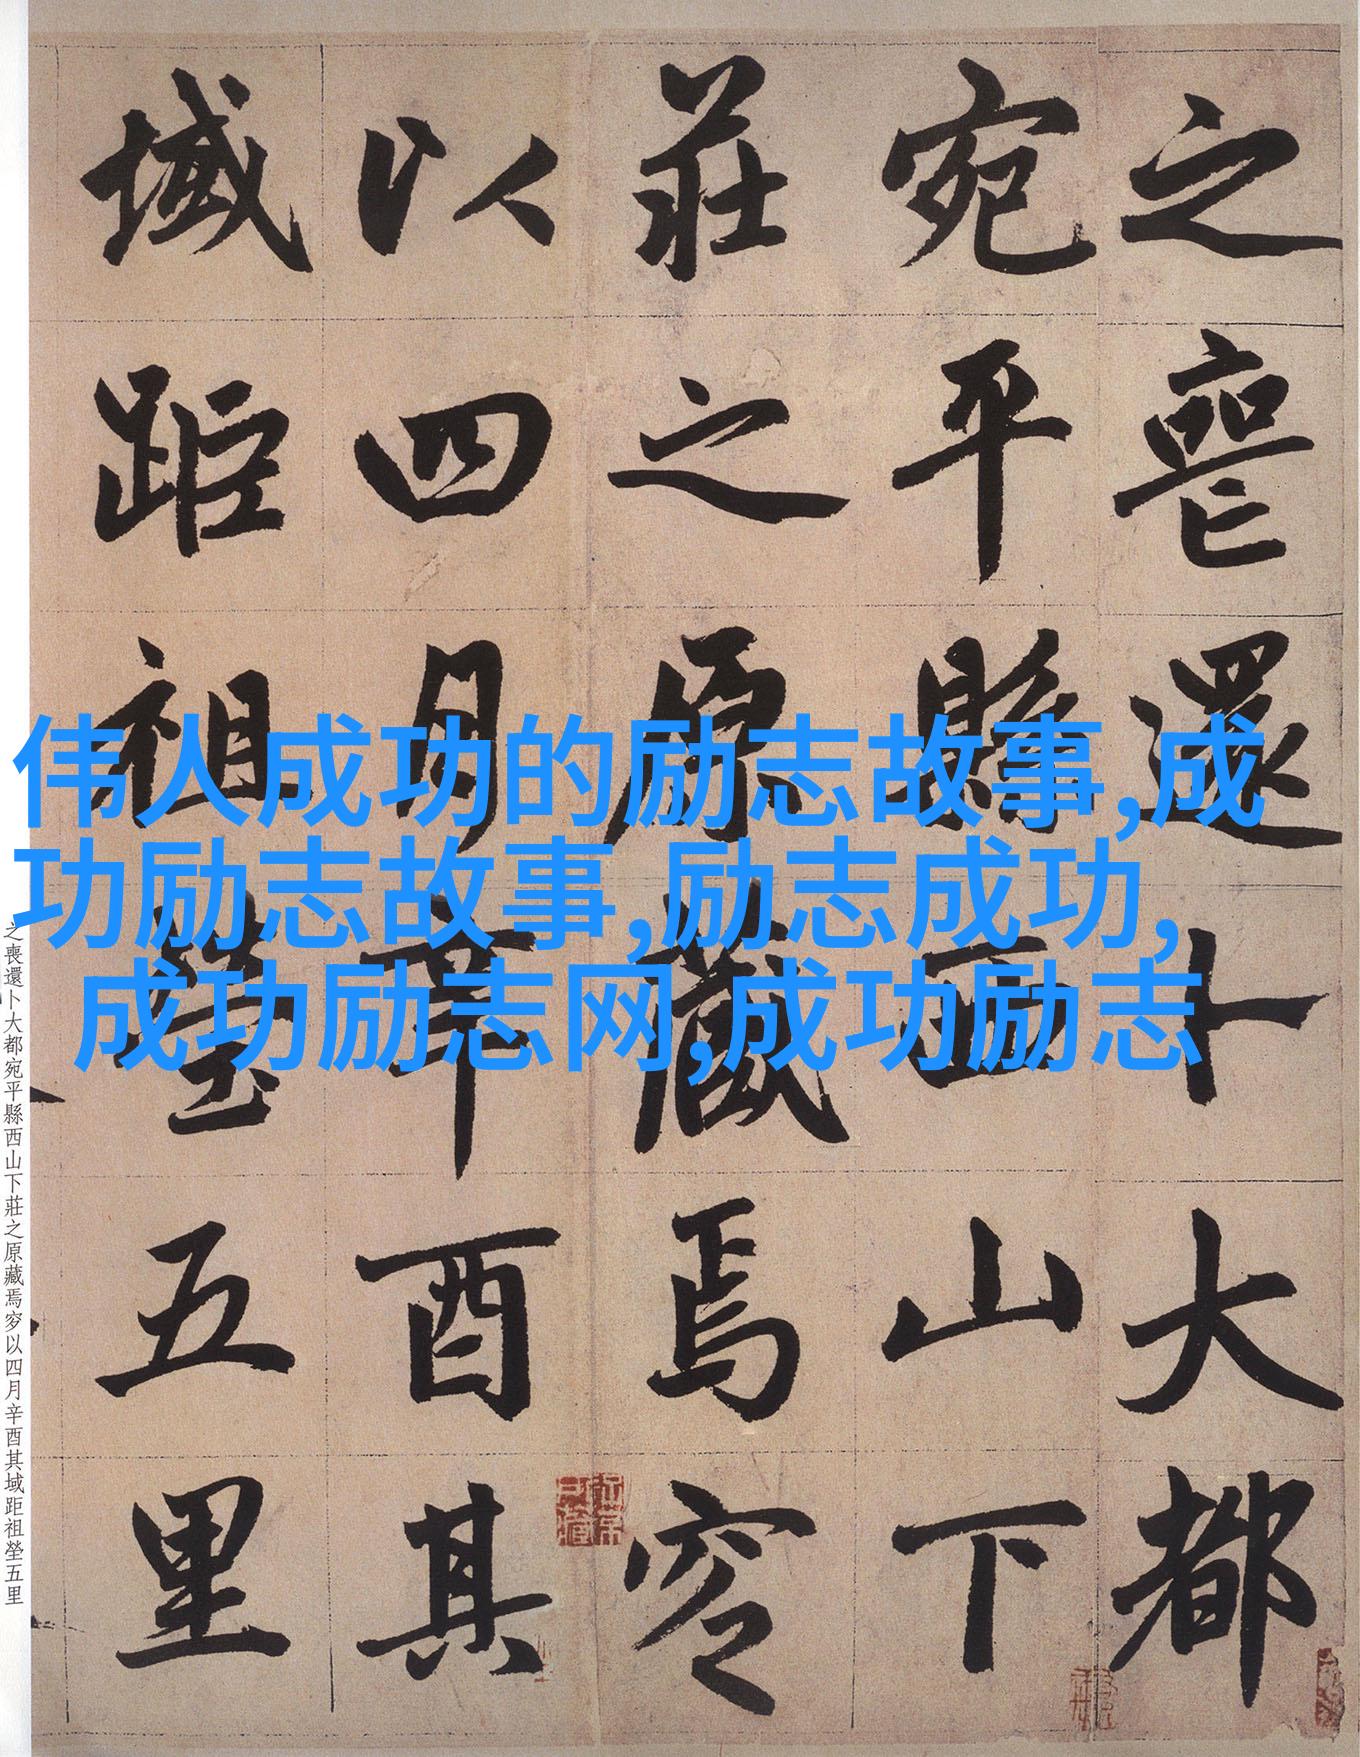 伟人成功的励志故事,成
功励志故事,励志成功,
成功励志网,成功励志
之喪還卜大都
宛平縣西山下
莊之原藏焉窆
以四月辛酉其
域距祖塋五里
之喪還卜大都宛平縣西山下莊之原藏焉窆以四月辛酉其域距祖塋五里